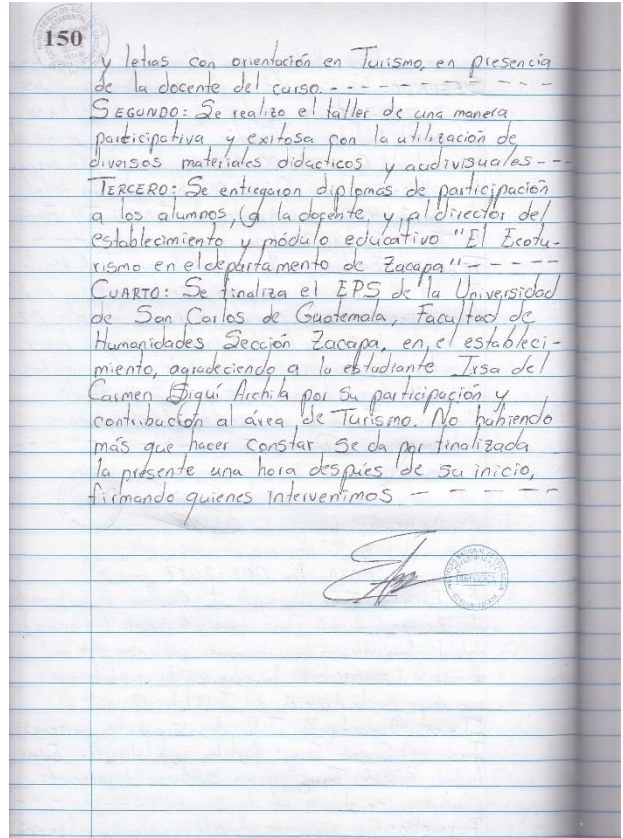 150
y letras con orientación en Turismo, en presencia
de la docente del curso. - - - - - - - - -
SEGUNDO: Se realizo el taller de una manera
participativa y exitosa con la utilización de
diversos materiales didacticos y audivisuales - - -
TERCERO: Se entregaron diplomas de participación
a los alumnos, (a la docente, y al director del
establecimiento y módulo educativo "El Ecotu-
rismo en el departamento de Zacapa" - - - - -
CUARTO: Se finaliza el EPS de la Universidad
de San Carlos de Guatemala, Facultad de
Humanidades Sección Zacapa, en el estableci-
miento, agradeciendo a la estudiante Irsa del
Carmen Siquí Archila por su participación y
contribución al área de Turismo. No habiendo
más que hacer constar se da por finalizada
la presente una hora despúes de su inicio,
firmando quienes intervenimos - - - - - -